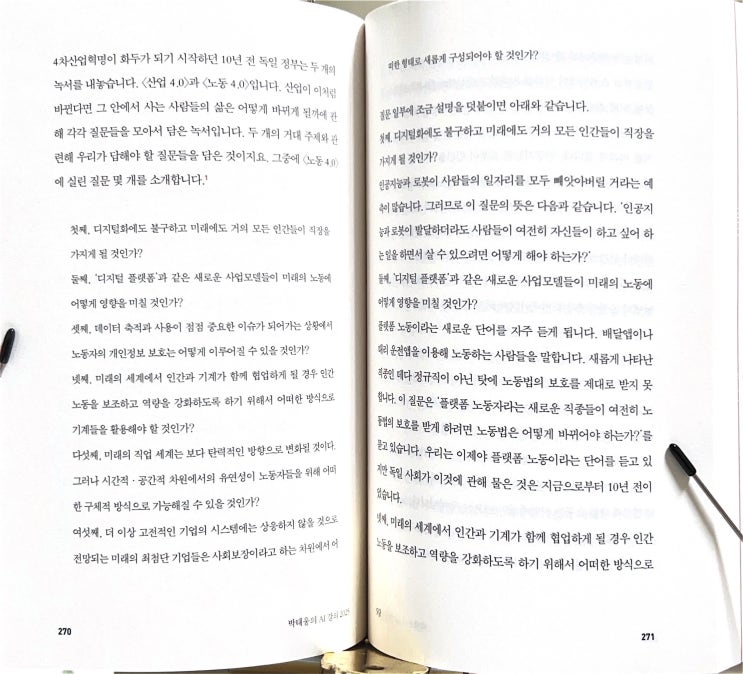 4차산업혁명이 화두가 되기 시작하던 10년 전 독일 정부는 두 개의
녹서를 내놓습니다. 〈산업 4.0〉과 〈노동 4.0〉입니다. 산업이 이처럼
바뀐다면 그 안에서 사는 사람들의 삶은 어떻게 바뀌게 될까에 관
해 각각 질문들을 모아서 담은 녹서입니다. 두 개의 거대 주제와 관
련해 우리가 답해야 할 질문들을 담은 것이지요. 그중에 〈노동 4.0〉
에 실린 질문 몇 개를 소개합니다.¹
첫째, 디지털화에도 불구하고 미래에도 거의 모든 인간들이 직장을
가지게 될 것인가?
둘째, '디지털 플랫폼'과 같은 새로운 사업모델들이 미래의 노동에
어떻게 영향을 미칠 것인가?
셋째, 데이터 축적과 사용이 점점 중요한 이슈가 되어가는 상황에서
노동자의 개인정보 보호는 어떻게 이루어질 수 있을 것인가?
넷째, 미래의 세계에서 인간과 기계가 함께 협업하게 될 경우 인간
노동을 보조하고 역량을 강화하도록 하기 위해서 어떠한 방식으로
기계들을 활용해야 할 것인가?
다섯째, 미래의 직업 세계는 보다 탄력적인 방향으로 변화될 것이다.
그러나 시간적·공간적 차원에서의 유연성이 노동자들을 위해 어떠
한 구체적 방식으로 가능해질 수 있을 것인가?
여섯째, 더 이상 고전적인 기업의 시스템에는 상응하지 않을 것으로
전망되는 미래의 최첨단 기업들은 사회보장이라고 하는 차원에서 어
270
박태웅의 AI 강의 2025
떠한 형태로 새롭게 구성되어야 할 것인가?
질문 일부에 조금 설명을 덧붙이면 아래와 같습니다.
첫째, 디지털화에도 불구하고 미래에도 거의 모든 인간들이 직장을
가지게 될 것인가?
인공지능과 로봇이 사람들의 일자리를 모두 빼앗아버릴 거라는 예
측이 많습니다. 그러므로 이 질문의 뜻은 다음과 같습니다. '인공지
능과 로봇이 발달하더라도 사람들이 여전히 자신들이 하고 싶어 하
는 일을 하면서 살 수 있으려면 어떻게 해야 하는가?'
둘째, '디지털 플랫폼'과 같은 새로운 사업모델들이 미래의 노동에
어떻게 영향을 미칠 것인가?
플랫폼 노동이라는 새로운 단어를 자주 듣게 됩니다. 배달앱이나
대리 운전앱을 이용해 노동하는 사람들을 말합니다. 새롭게 나타난
직종인 데다 정규직이 아닌 탓에 노동법의 보호를 제대로 받지 못
합니다. 이 질문은 '플랫폼 노동자라는 새로운 직종들이 여전히 노
동법의 보호를 받게 하려면 노동법은 어떻게 바뀌어야 하는가?'를
묻고 있습니다. 우리는 이제야 플랫폼 노동이라는 단어를 듣고 있
지만 독일 사회가 이것에 관해 물은 것은 지금으로부터 10년 전이
었습니다.
넷째, 미래의 세계에서 인간과 기계가 함께 협업하게 될 경우 인간
노동을 보조하고 역량을 강화하도록 하기 위해서 어떠한 방식으로
271